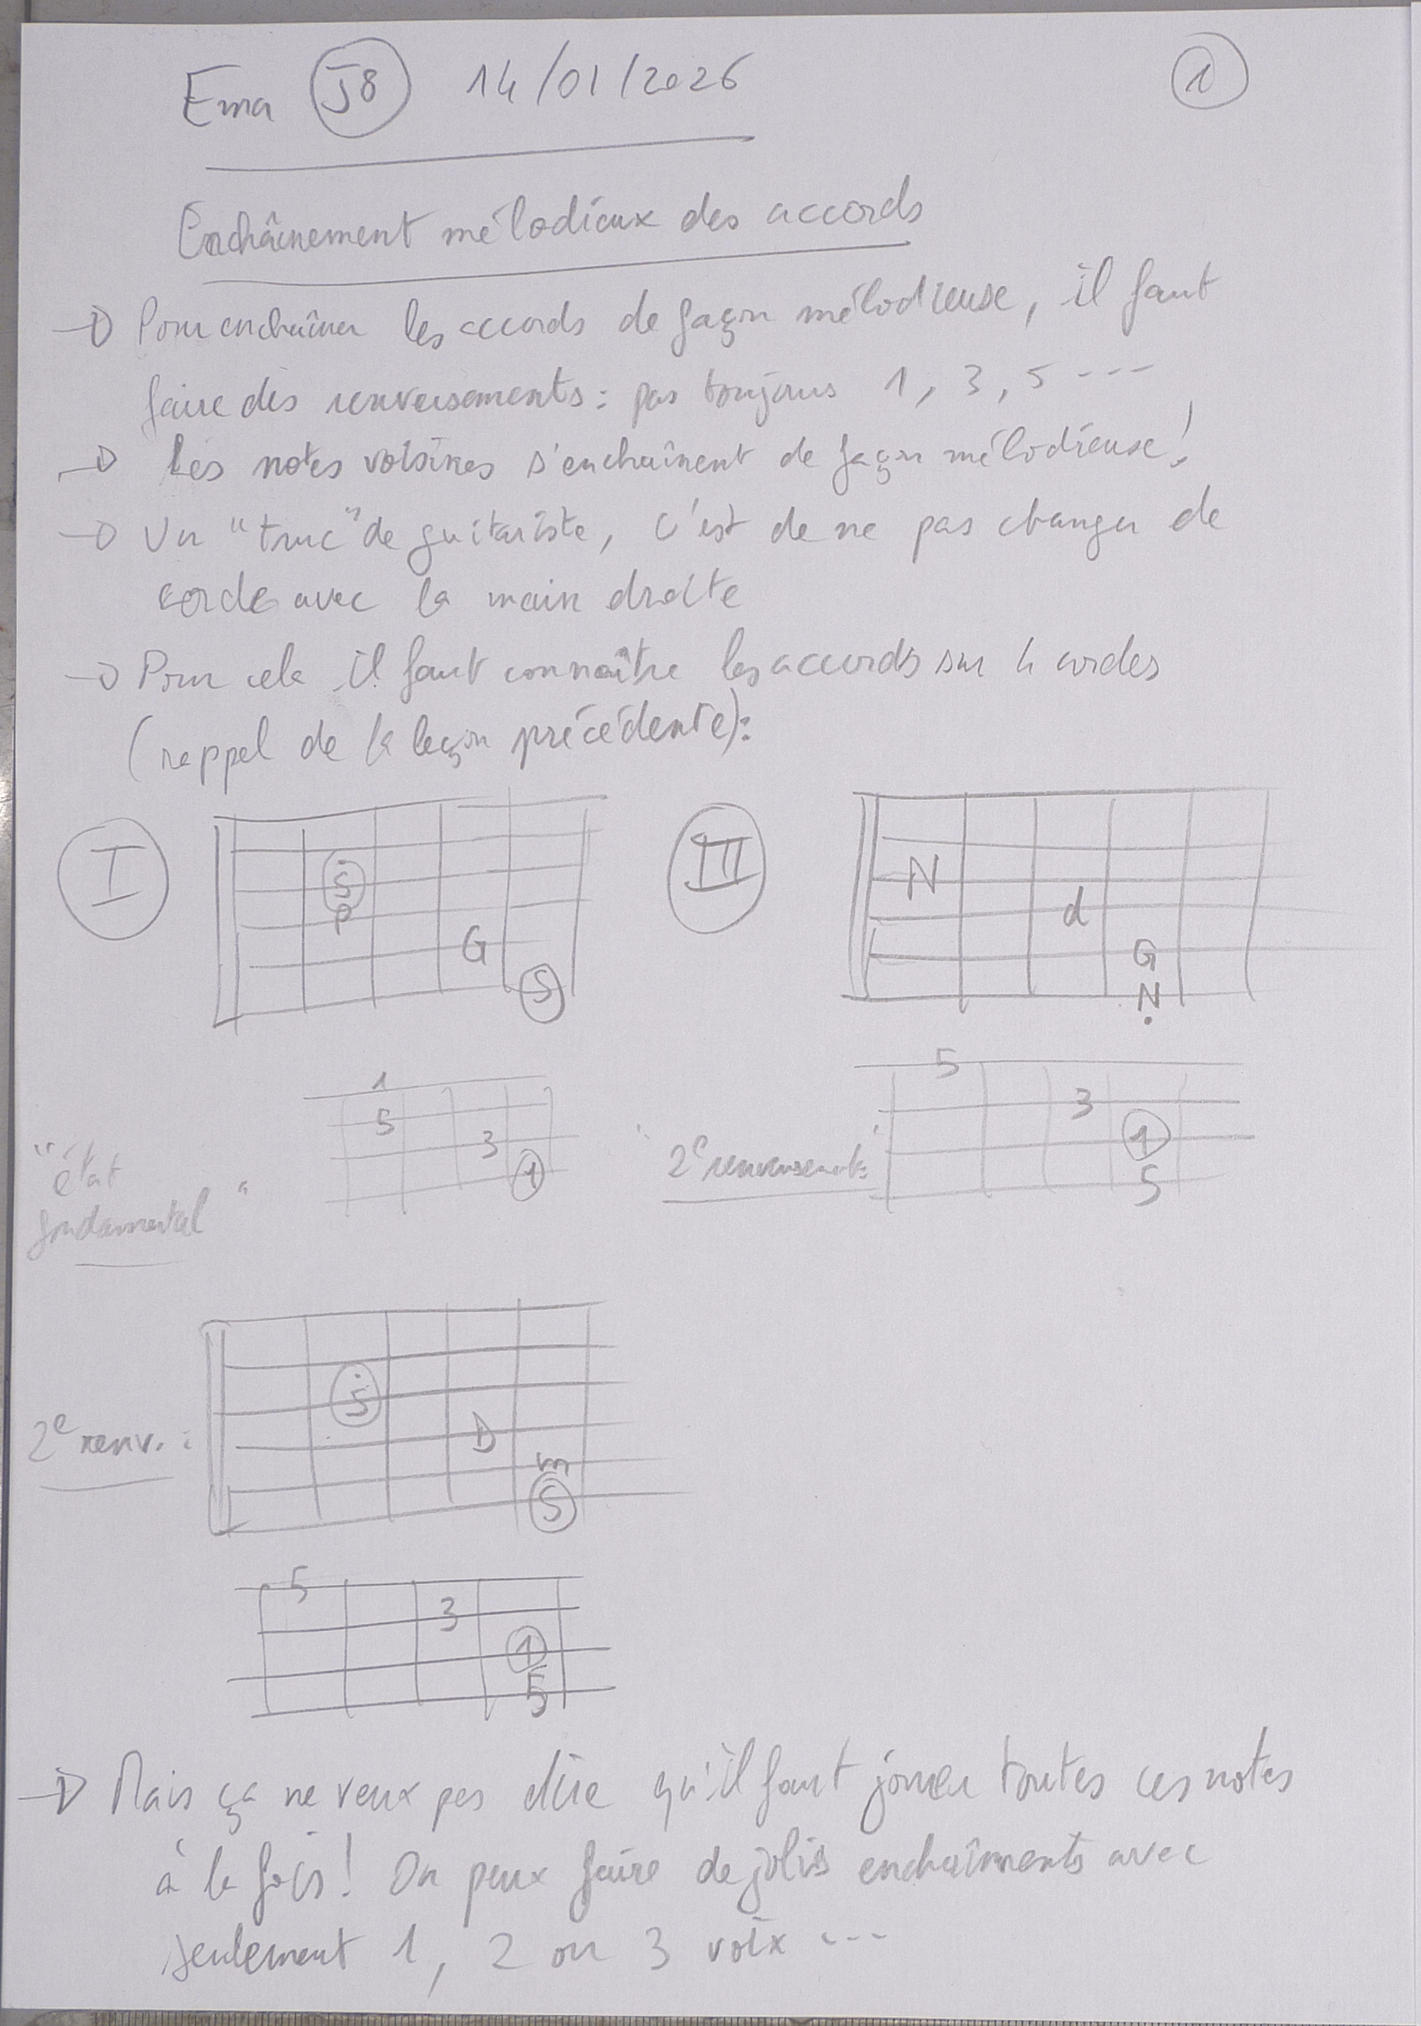 Ema J8 14/01/2026
1
Enchaînement mélodieux des accords
→ Pour enchaîner les accords de façon mélodieuse, il faut
faire des renversements : pas toujours 1, 3, 5 ---
→ Les notes voisines s'enchaînent de façon mélodieuse!
→ Un "truc" de guitariste, c'est de ne pas changer de
corde avec la main droite
→ Pour cela il faut connaître les accords sur 4 cordes
(rappel de la leçon précédente):
I
S
P
G
S
III
N
d
G
N
"état
fondamental"
1
5
3
1
"2e renversement"
5
3
1
5
2e renv. :
S
D
m
S
5
3
1
5
→ Mais ça ne veux pas dire qu'il faut jouer toutes ces notes
à la fois! On peux faire de jolis enchaînments avec
seulement 1, 2 ou 3 voix ---